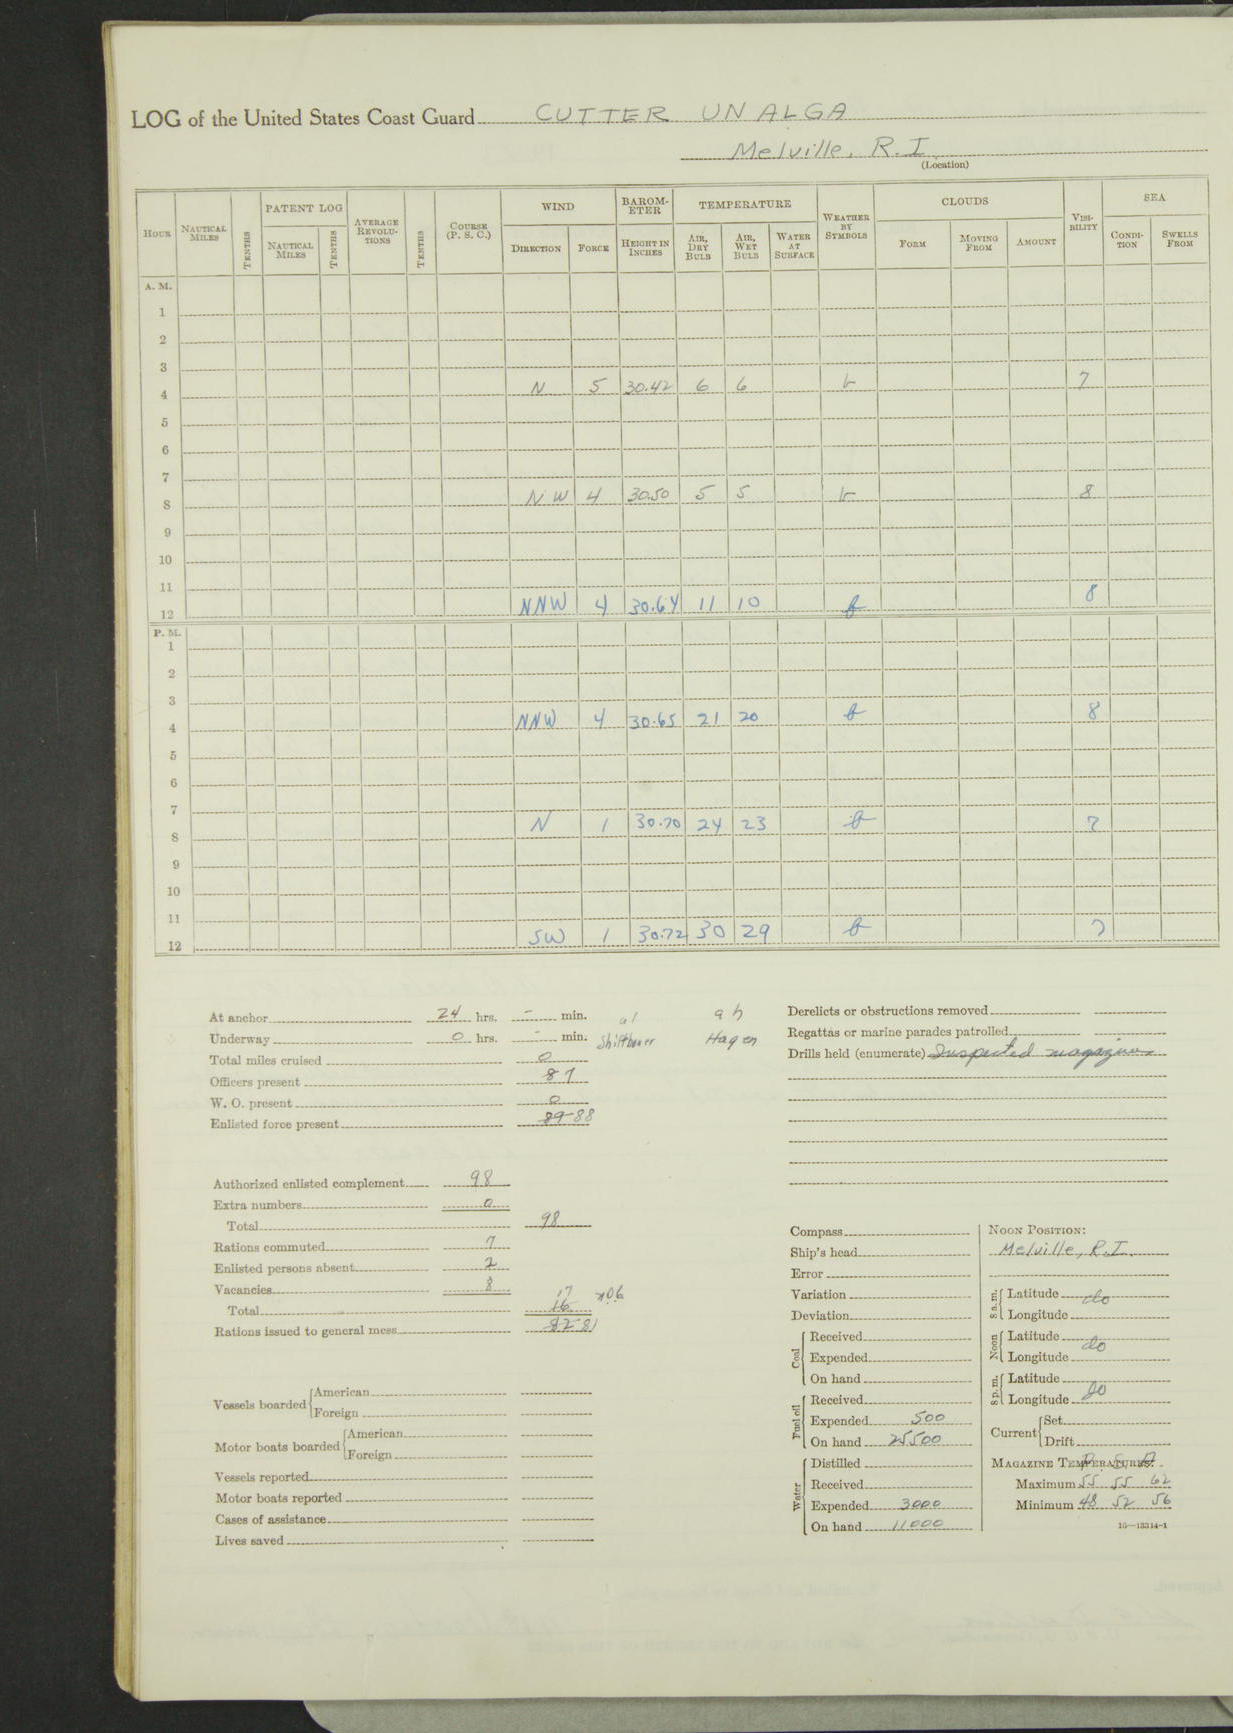 LOG of the United States Coast Guard CUTTER UNALGA
Melville, R.I.
(Location)
HOUR NAUTICAL MILES TENTHS PATENT LOG AVERAGE REVOLUTIONS TENTHS COURSE (P. S. C.) WIND BAROMETER TEMPERATURE WEATHER BY SYMBOLS CLOUDS VISIBILITY SEA
NAUTICAL MILES TENTHS DIRECTION FORCE HEIGHT IN INCHES AIR, DRY BULB AIR, WET BULB WATER AT SURFACE FORM MOVING FROM AMOUNT CONDITION SWELLS FROM
A. M.
1
2
3
4 N 5 30.42 6 6 b 7
5
6
7
8 NW 4 30.50 5 5 b 8
9
10
11
12 NNW 4 30.64 11 10 b 8
P. M.
1
2
3
4 NNW 4 30.65 21 20 b 8
5
6
7
8 N 1 30.70 24 23 b 7
9
10
11
12 SW 1 30.72 30 29 b 7
At anchor 24 hrs. - min.
Underway 0 hrs. - min. Hagen
Total miles cruised 0
Officers present 8 7
W. O. present 0
Enlisted force present 89 88
Authorized enlisted complement 98
Extra numbers 0
Total 98
Rations commuted 7
Enlisted persons absent 2
Vacancies 8
Total 16 17
Rations issued to general mess 82 81
Vessels boarded American
Foreign
Motor boats boarded American
Foreign
Vessels reported
Motor boats reported
Cases of assistance
Lives saved
Derelicts or obstructions removed
Regattas or marine parades patrolled
Drills held (enumerate) Inspected magazines
Compass
Ship's head
Error
Variation
Deviation
Coal Received
Expended
On hand
Fuel oil Received
Expended 500
On hand 25500
Water Distilled
Received
Expended 3000
On hand 11000
NOON POSITION:
Melville, R.I.
8 a. m. Latitude
Longitude do
Noon Latitude
Longitude do
8 p. m. Latitude
Longitude do
Current Set
Drift
MAGAZINE TEMPERATURES:
Maximum 55 55 62
Minimum 48 52 56
16—13314-1